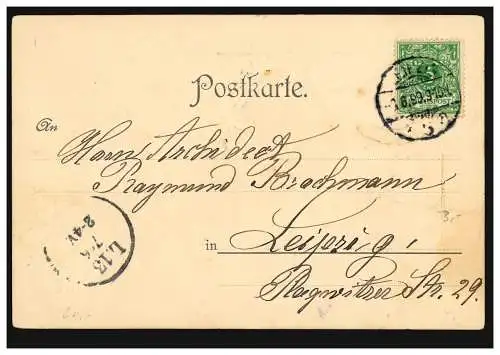 Postkarte.
An
Herrn Architect
Raymund Brachmann
in Leipzig,
Plagwitzer Str. 29.
L 13
7/6
2-4V
3,-